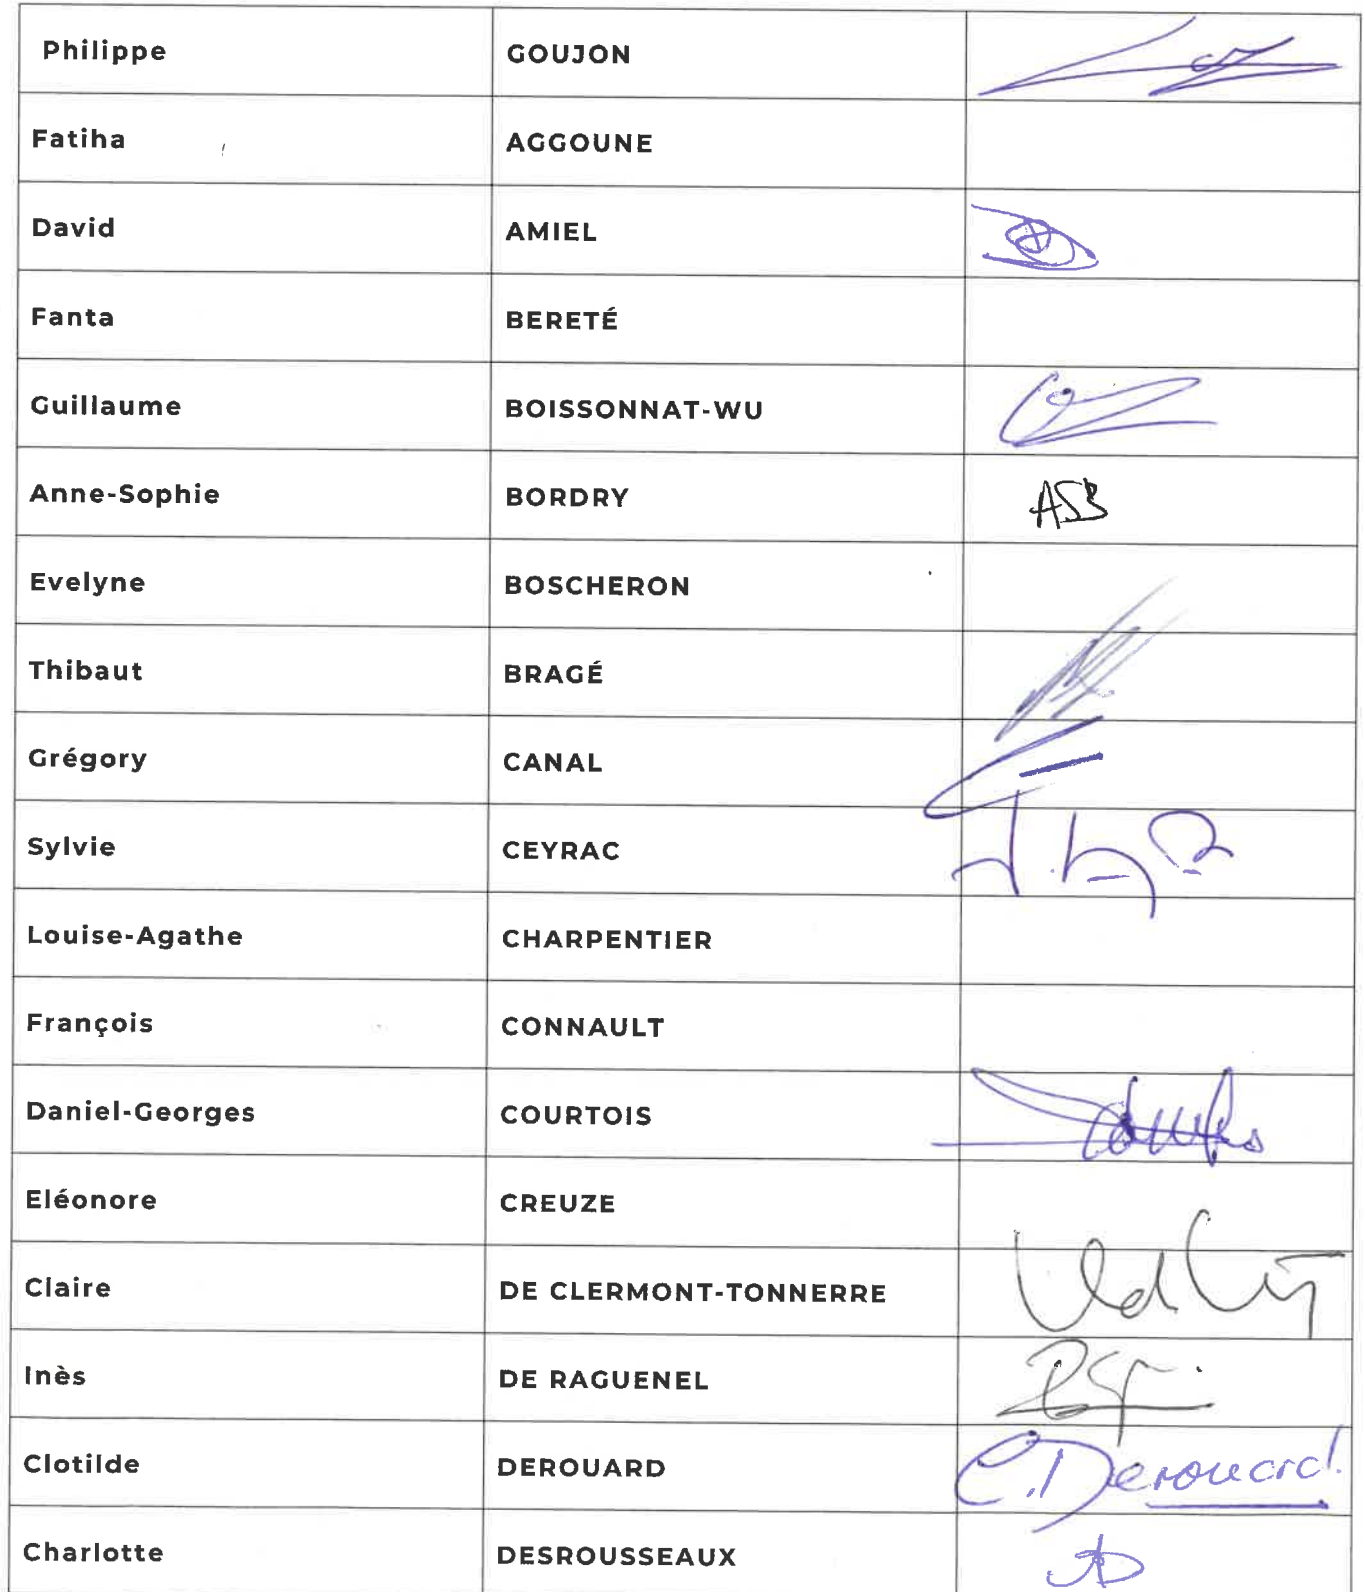 Philippe GOUJON
Fatiha AGGOUNE
David AMIEL
Fanta BERETÉ
Guillaume BOISSONNAT-WU
Anne-Sophie BORDRY ASB
Evelyne BOSCHERON
Thibaut BRAGÉ
Grégory CANAL
Sylvie CEYRAC
Louise-Agathe CHARPENTIER
François CONNAULT
Daniel-Georges COURTOIS
Eléonore CREUZE
Claire DE CLERMONT-TONNERRE
Inès DE RAGUENEL
Clotilde DEROUARD C. Derouard
Charlotte DESROUSSEAUX